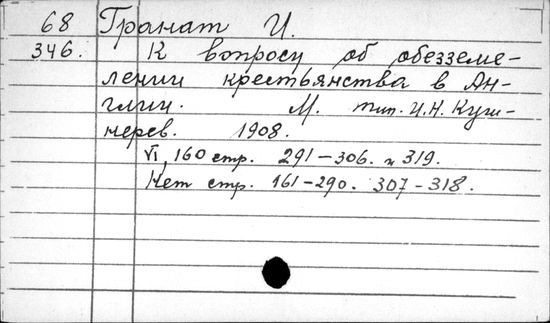 68 Гранат И.
346. К вопросу об обезземе-
лении крестьянства в Ан-
глии. М. тип. И.Н. Куш-
нерев. 1908.
VI, 160 стр. 291-306. и 319.
Нет стр. 161-290. 307-318.